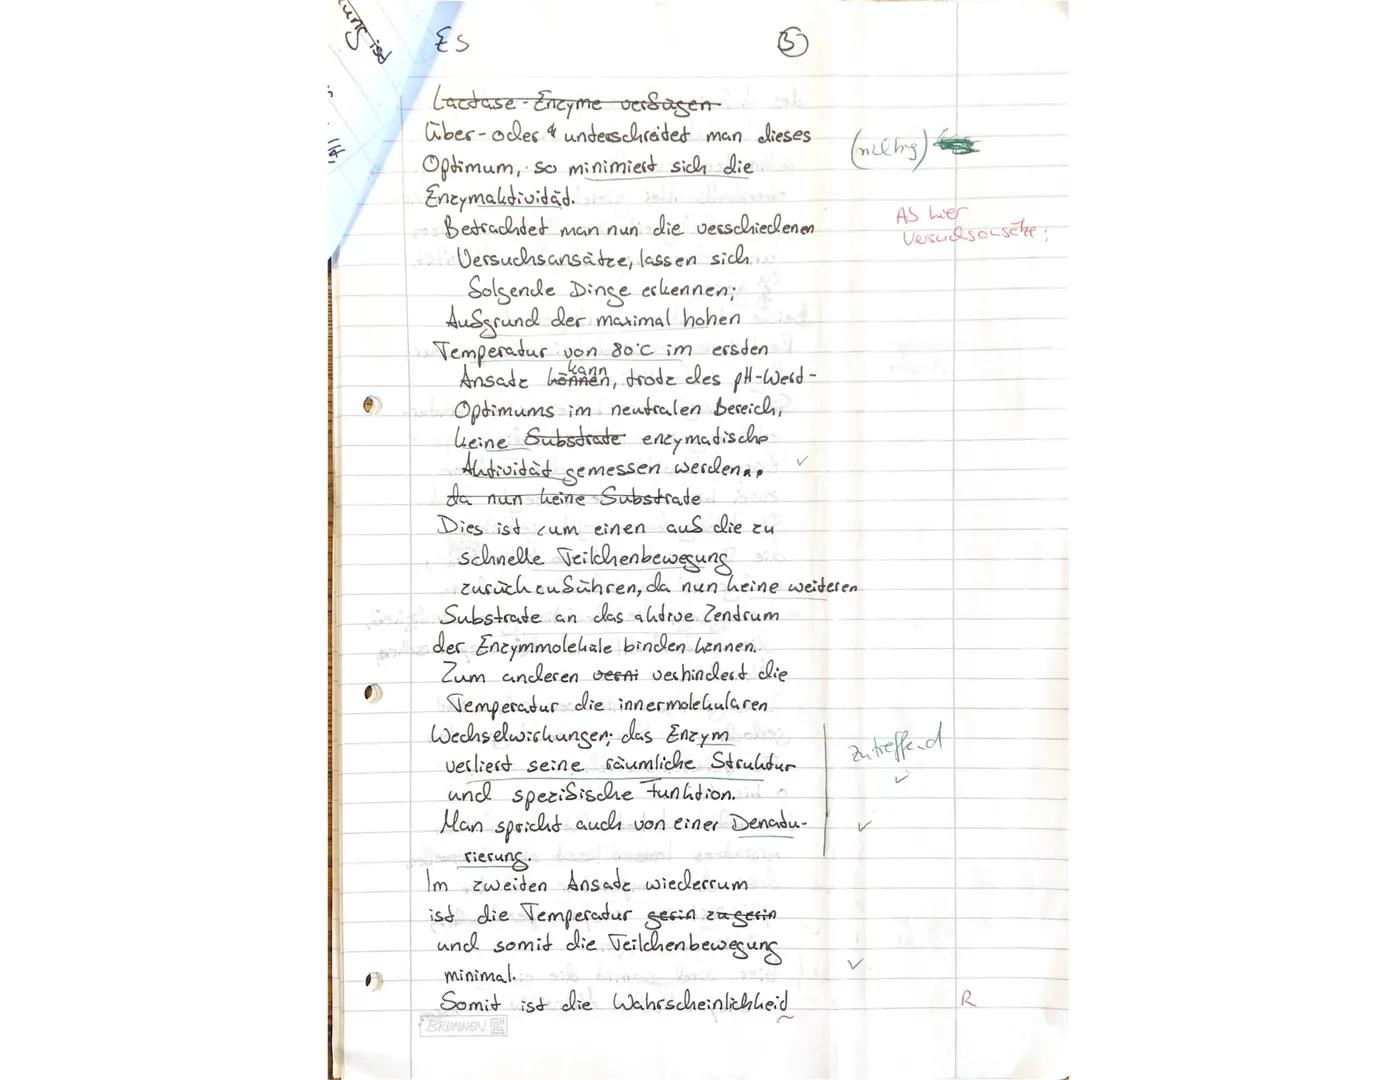 ung ist
ES
3
Lactase-Enzyme verfügen
Über- oder unterschreitet man dieses
(richtig)
Optimum, so minimiert sich die
Enzymaktivität.
AS hier
Versuchsansätze;
Betrachtet man nun die verschiedenen
Versuchsansätze, lassen sich
folgende Dinge erkennen;
Aufgrund der maximal hohen
Temperatur von 80°C im ersten
Ansatz können, kann trotz des pH-Wert-
Optimums im neutralen Bereich,
keine Substrate enzymatische
Aktivität gemessen werden.
da nun keine Substrate
Dies ist zum einen auf die zu
schnelle Teilchenbewegung
zurückzuführen, da nun keine weiteren
Substrate an das aktive Zentrum
der Enzymmoleküle binden können.
Zum anderen verhindert die
Temperatur die innermolekularen
Wechselwirkungen; das Enzym
zutreffend
verliert seine räumliche Struktur
und spezifische Funktion.
Man spricht auch von einer Denatu-
rierung.
Im zweiten Ansatz wiederrum
ist die Temperatur gerin zu gerin
und somit die Teilchenbewegung
minimal.
Somit ist die Wahrscheinlichkeid
R
BRUNNEN